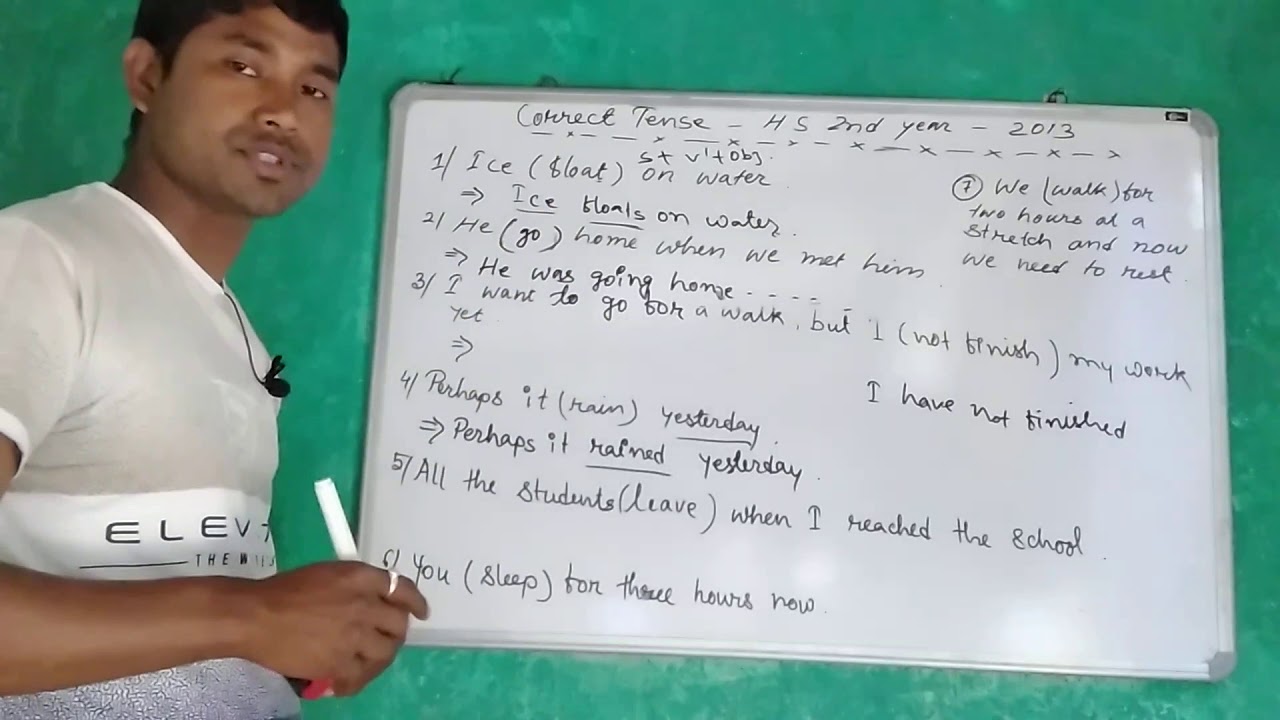 Correct Tense - HS 2nd year - 2013
S+ V'+Obj.
1/ Ice (float) on water.
⇒ Ice floats on water.
2/ He (go) home when we met him.
⇒ He was going home - - - - -
3/ I want to go for a walk, but I (not finish) my work
yet.
⇒
I have not finished
4/ Perhaps it (rain) yesterday.
⇒ Perhaps it rained yesterday.
5/ All the students (leave) when I reached the school.
6/ You (sleep) for three hours now.
⑦ We (walk) for
two hours at a
stretch and now
we need to rest.
ELEV
THE W